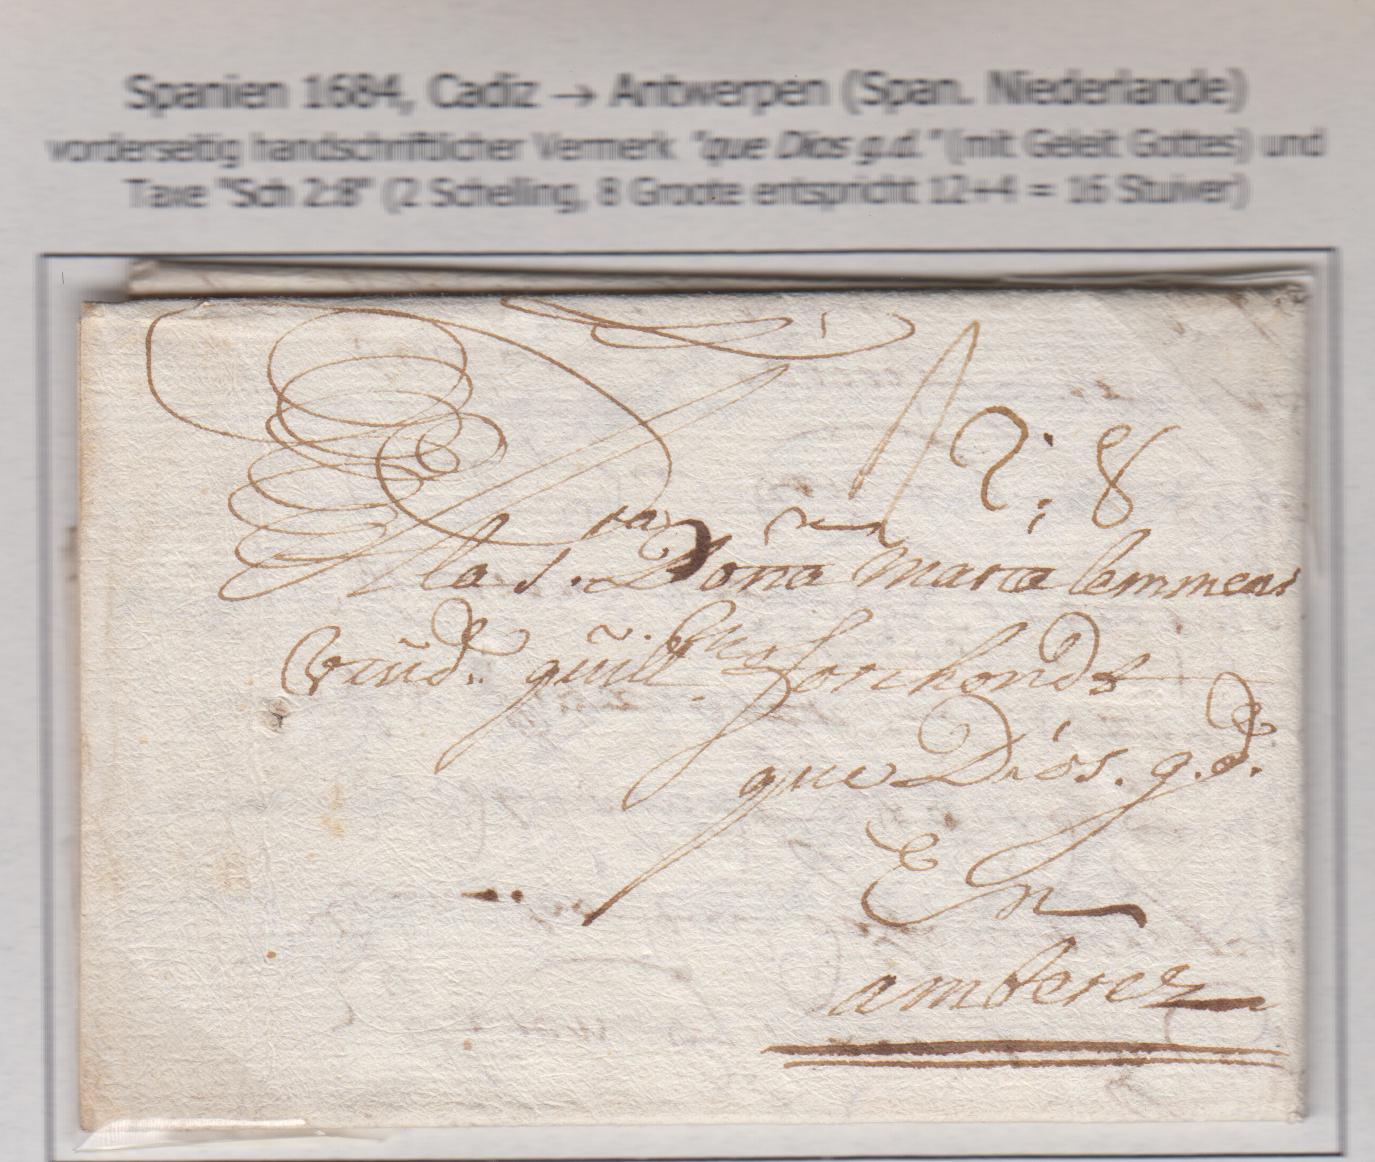 Spanien 1684, Cadiz → Antwerpen (Span. Niederlande)
vorderseitig handschriftlicher Vermerk "que Dios g.d." (mit Geleit Gottes) und
Taxe "Sch 2:8" (2 Schelling, 8 Groote entspricht 12+4 = 16 Stuiver)
2:8
A la S.ra Doña Maria lemmens
viud.a guill.mo forchondt
que Dios. g.d.
En
amberez